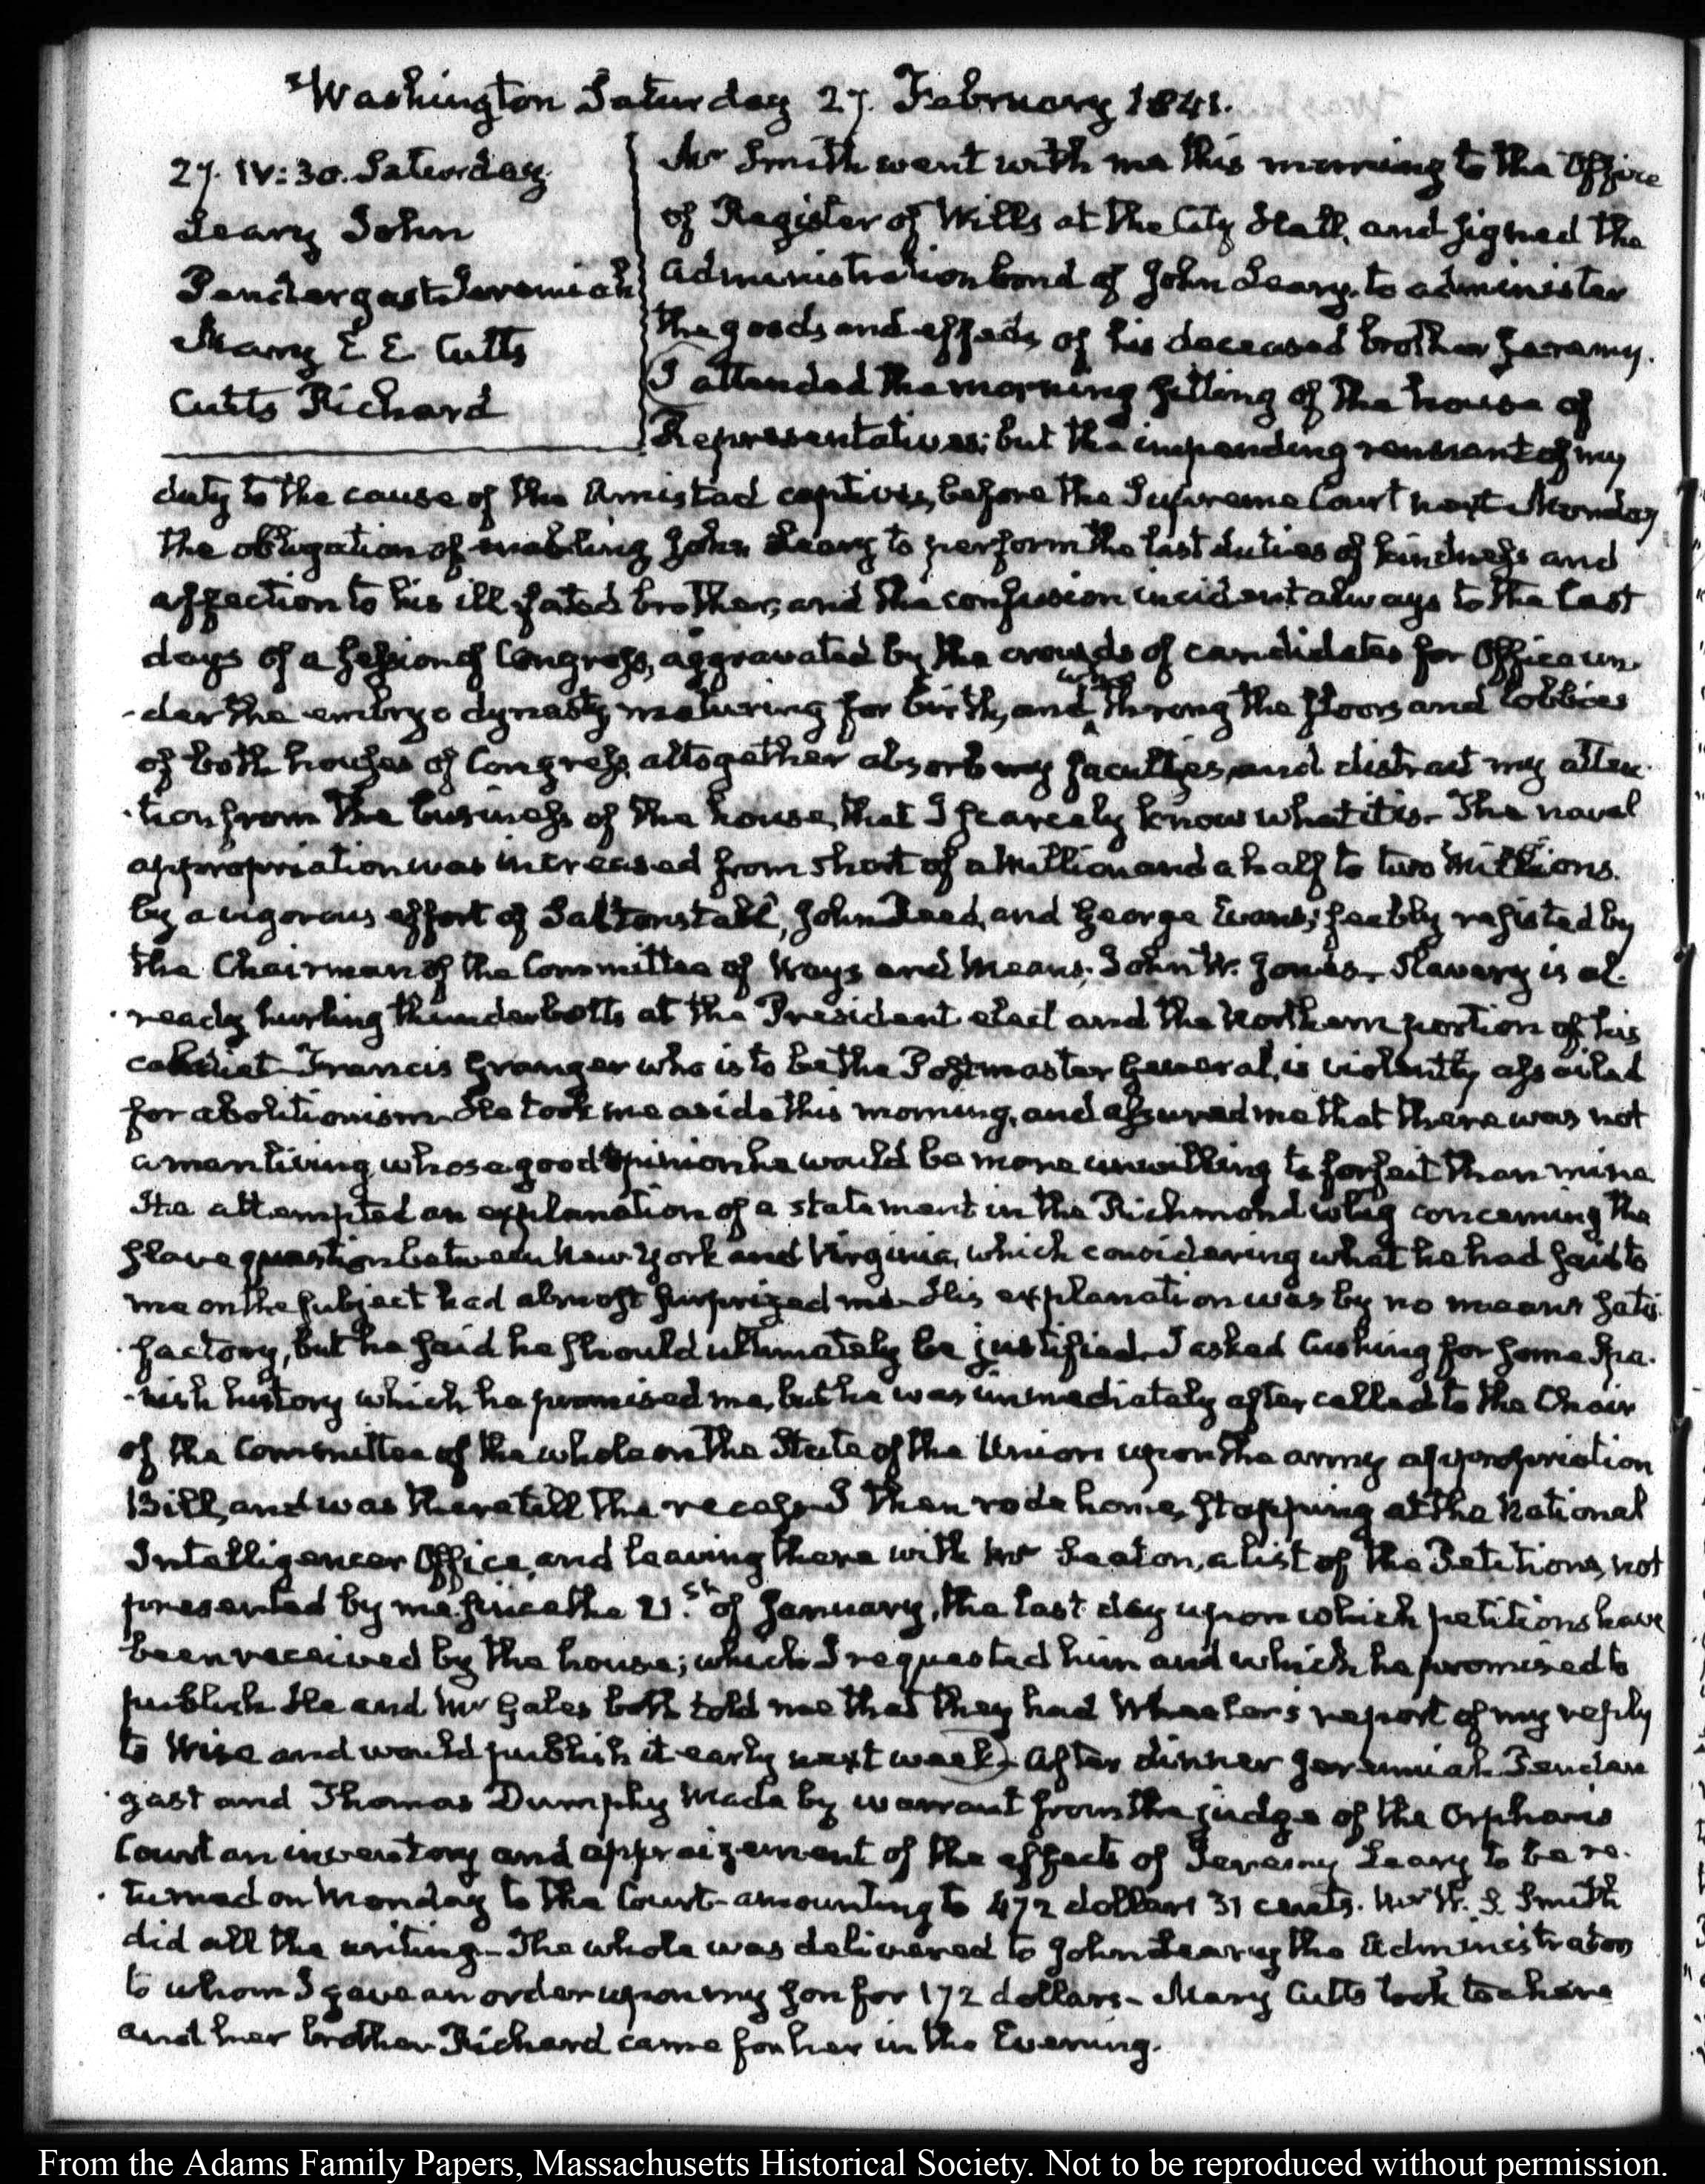 Washington Saturday 27. February 1841.
27. IV:30. Saturday
Leary John
Pendergast Jeremiah
Mary E E Cutts
Cutts Richard
Mr Smith went with me this morning to the Office
of Register of Wills at the City Hall, and signed the
administration bond of John Leary, to administer
the goods and effects of his deceased brother Jeremy.
I attended the morning sitting of the house of
Representatives; but the impending remnant of my
duty to the cause of the Amistad captives, before the Supreme Court next Monday
the obligation of enabling John Leary to perform the last duties of kindness and
affection to his ill fated brother, and the confusion incident always to the last
days of a session of Congress, aggravated by the crowds of candidates for Office un-
-der the embryo dynasty maturing for birth, and who throng the floors and lobbies
of both houses of Congress, altogether absorb my faculties, and distract my atten-
-tion from the business of the house, that I scarcely know what it is. The naval
appropriation was increased from short of a Million and a half to two Millions.
by a vigorous effort of Saltonstall, John Reed, and George Evans; feebly resisted by
the Chairman of the Committee of Ways and Means, John W. Jones. Slavery is al-
-ready hurling thunderbolts at the President elect and the Northern portion of his
cabinet. Francis Granger who is to be the Postmaster General, is violently assailed
for abolitionism. He took me aside this morning, and assured me that there was not
a man living, whose good opinion he would be more unwilling to forfeit than mine
He attempted an explanation of a statement in the Richmond Whig concerning the
slave question between New York and Virginia, which considering what he had said to
me on the subject had almost surprized me. His explanation was by no means satis-
-factory, but he said he should ultimately be justified. I asked Cushing for some Spa-
-nish history which he promised me, but he was immediately after called to the Chair
of the Committee of the whole on the State of the Union upon the army appropriation
Bill, and was there till the recess. I then rode home, stopping at the National
Intelligencer Office, and leaving there with Mr Seaton, a list of the Petitions, not
presented by me since the 21.st of January, the last day upon which petitions have
been received by the house; which I requested him and which he promised to
publish. He and Mr Gales both told me that they had Wheeler's report of my reply
to Wise and would publish it early next week. After dinner Jeremiah Pender-
-gast and Thomas Dumphy made by warrant from the judge of the Orphans
Court an inventory and appraizement of the effects of Jeremy Leary to be re-
-turned on Monday to the Court. amounting to 472 dollars 31 cents. Mr W. S. Smith
did all the writing. The whole was delivered to John Leary the Administrator
to whom I gave an order upon my son for 172 dollars. Mary Cutts took tea here
and her brother Richard came for her in the Evening.
From the Adams Family Papers, Massachusetts Historical Society. Not to be reproduced without permission.